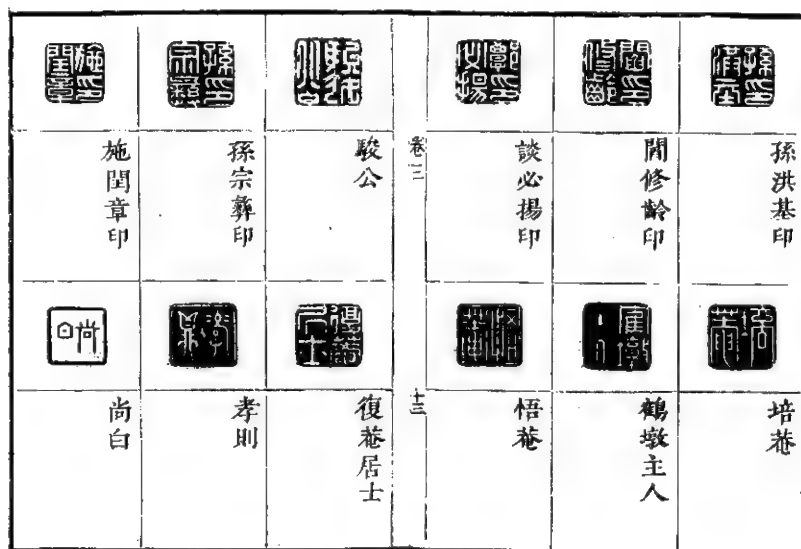 孫洪基印
閒修齡印
談必揚印
培菴
鶴墩主人
悟菴
卷二
十三
駿公
孫宗彝印
施閏章印
復菴居士
孝則
尚白